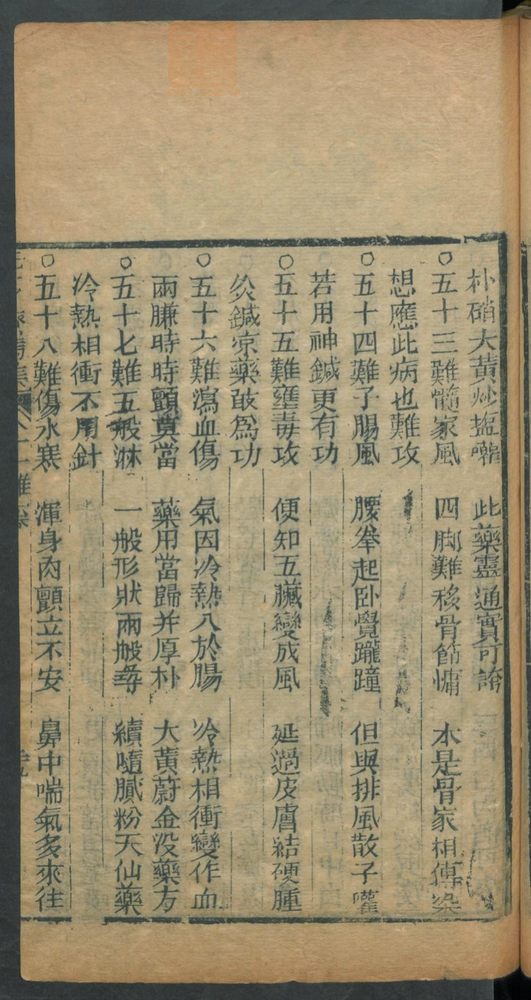 朴硝大黃炒塩啣　此藥靈通實可誇
○五十三難髓家風　四脚難移骨節慵　本是骨家相傳染
想應此病也難攻
○五十四難子腸風　腰拳起卧覺蹣蹱　但與排風散子嚾
若用神鍼更有功
○五十五難壅毒攻　便知五臟變成風　延過皮膚結硬腫
灸鍼凉藥敢爲功
○五十六難瀉血傷　氣因冷熱入於腸　冷熱相衝變作血
兩臁時時顫莫當　藥用當歸并厚朴　大黃蔚金没藥方
○五十七難五般淋　一般形狀兩般尋　續隨膩粉天仙藥
冷熱相衝不用針
○五十八難傷水寒　渾身肉顫立不安　鼻中喘氣多來往